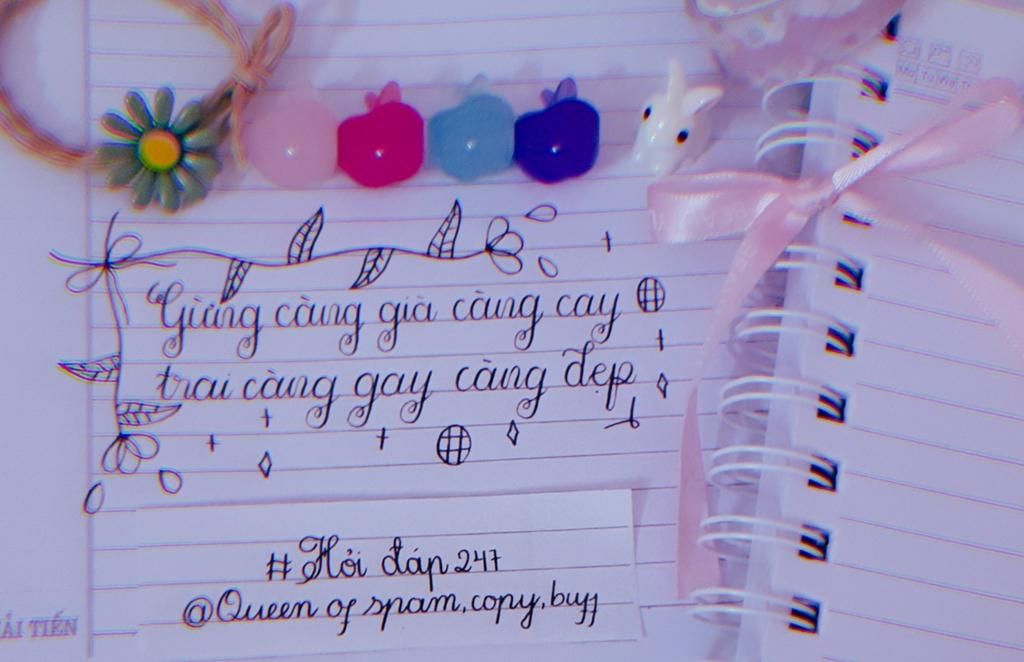 Gừng càng già càng cay
trai càng gay càng đẹp
#Hỏi đáp 247
@Queen of spam,copy,buff
ẢI TIẾN